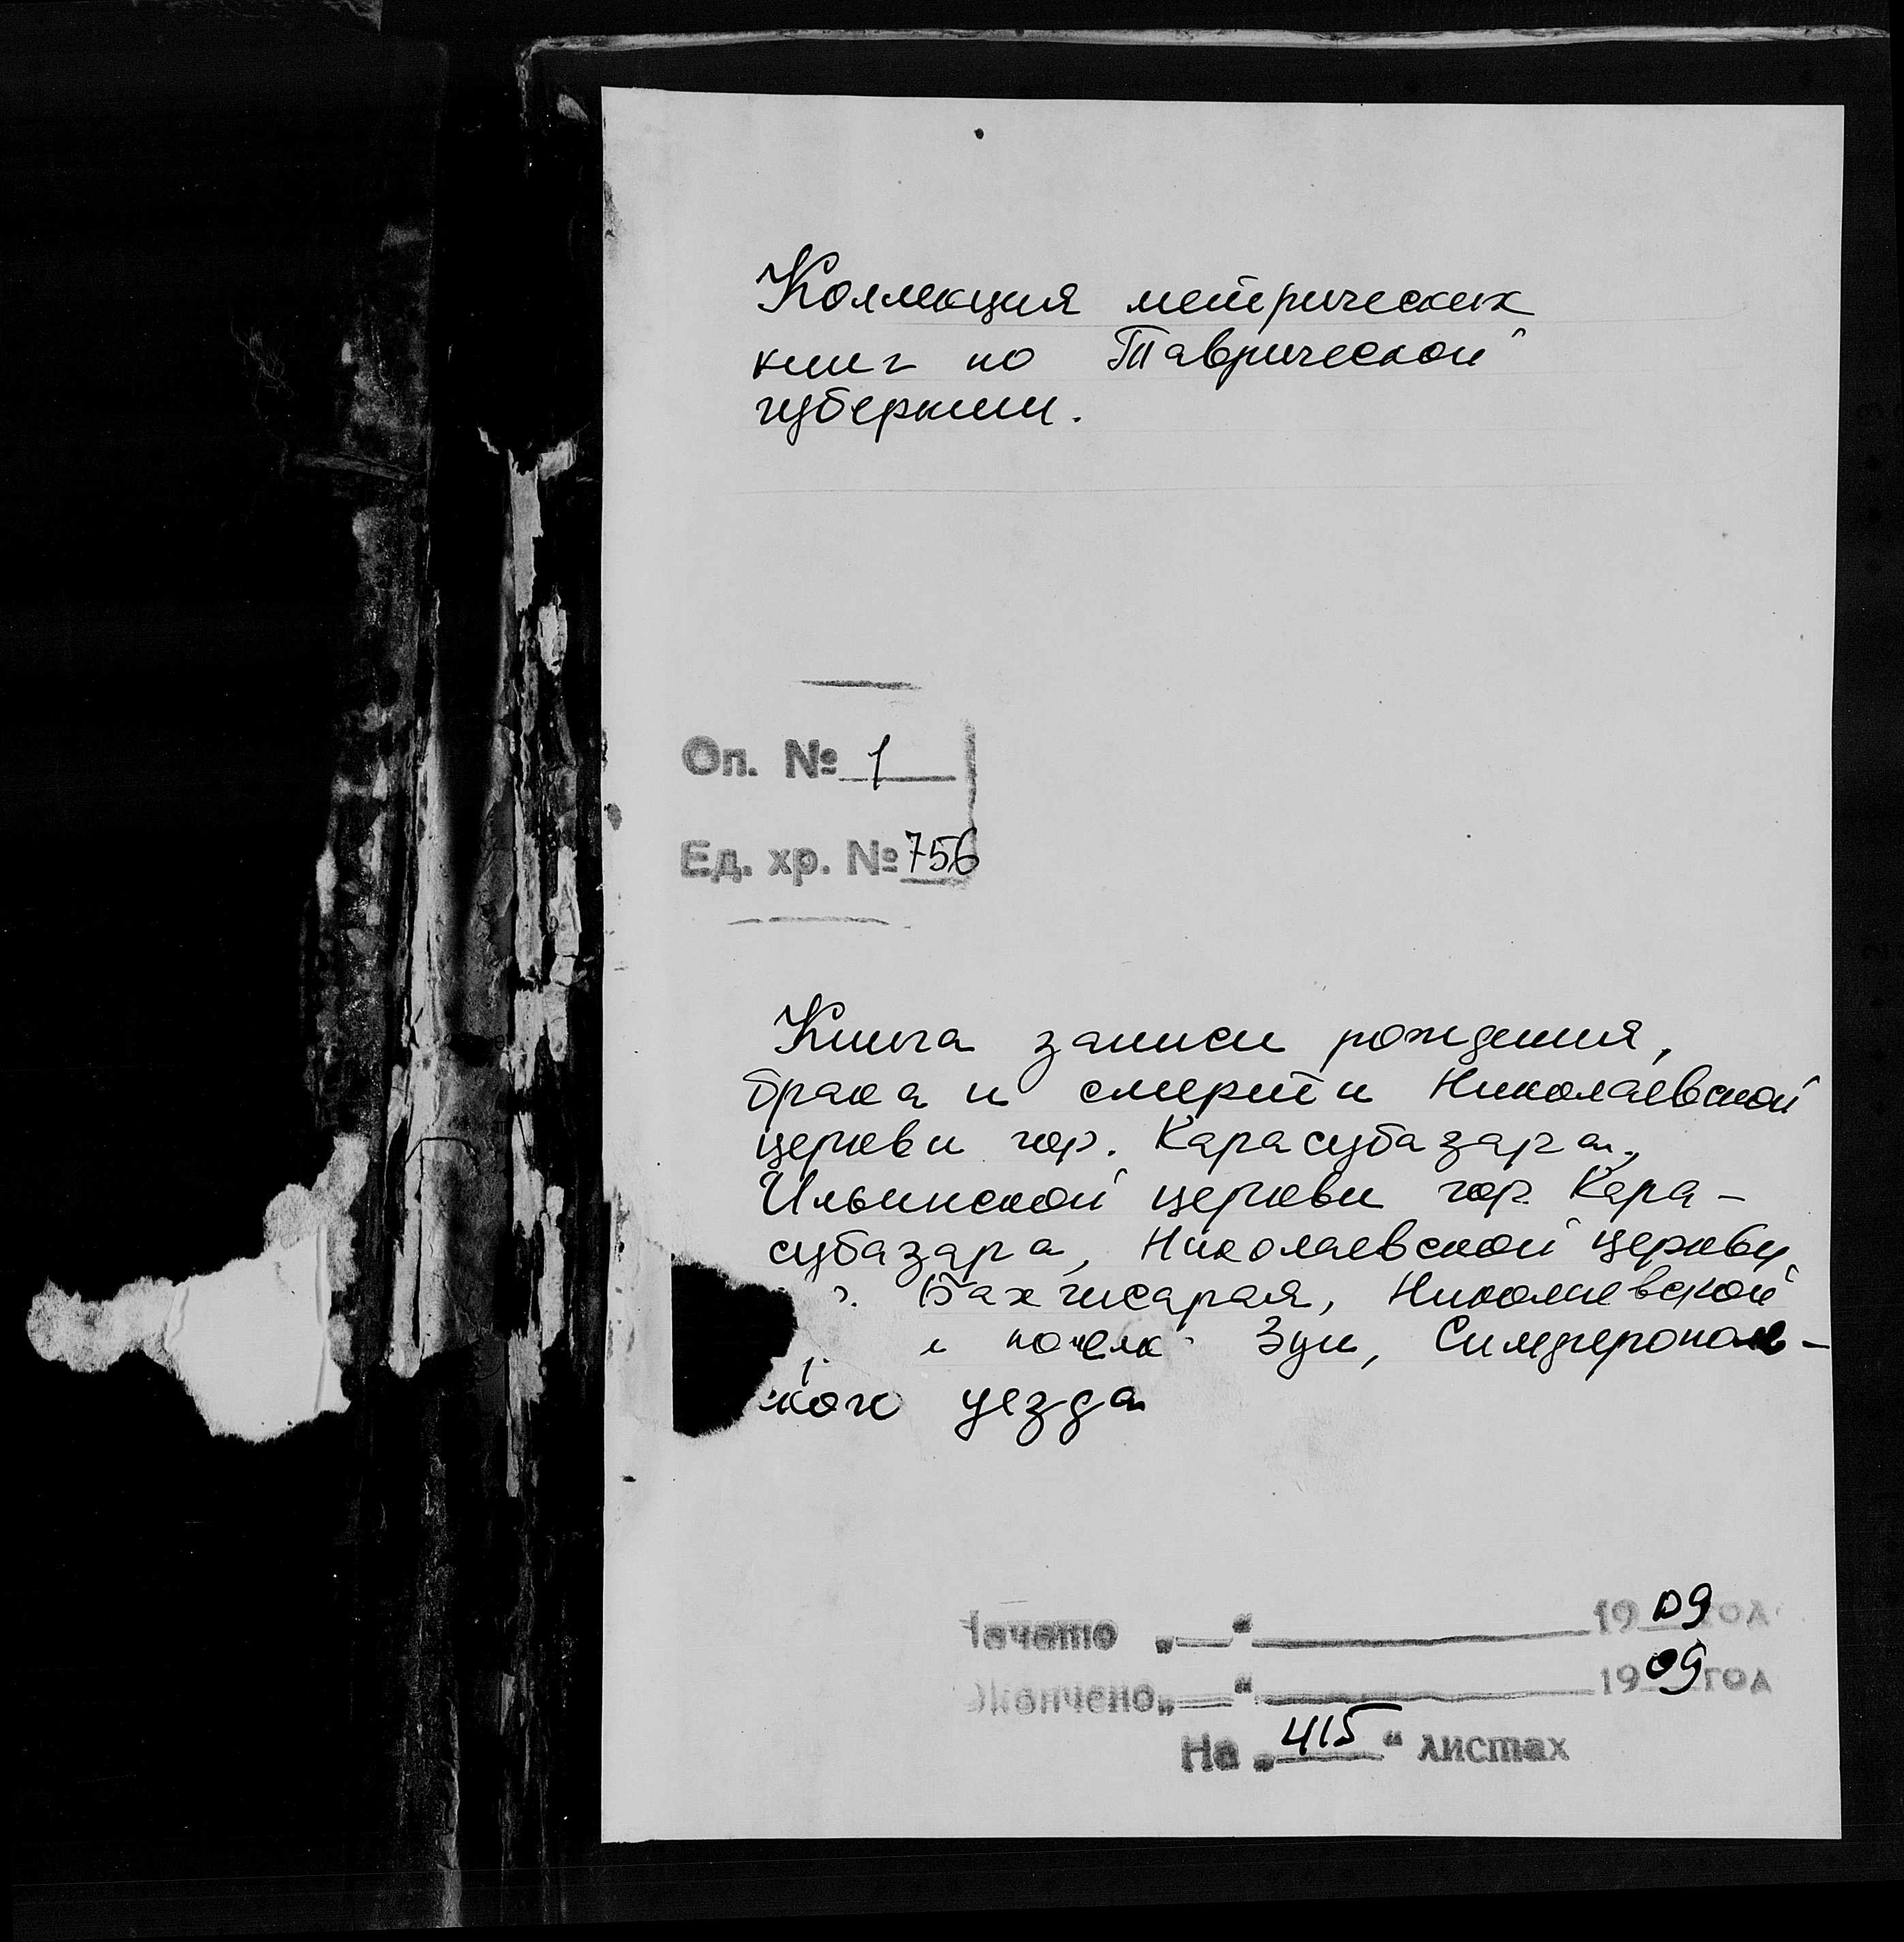 Коллекция метрических
книг по Таврической
губернии.
Оп. № 1
Ед. хр. № 756
Книга записи рождения,
брака и смерти Николаевской
церкви гор. Карасубазара,
Ильинской церкви гор. Кара-
субазара, Николаевской церкви
Бахчисарая, Николаевской
и Зуи, Симферополь-
ского уезда
Начато „ “ 1909 год
Окончено „ “ 1909 год
На „415“ листах